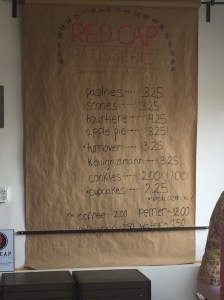 RED CAP
pastries --- 3.25
scones --- 3.25
tourtiere 4.25
apple pie --- 3.25
*turnover --- 3.25
Kouign amann --- 3.25
cookies --- 2.00
*cupcakes --- 2.25
coffee - 2.00 perrier - 2.00
tea water - 1.50
CAP